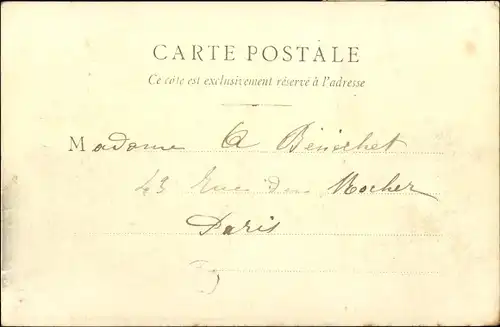 CARTE POSTALE
Ce côté est exclusivement réservé à l'adresse
Madame A Bénichet
43 Rue du Rocher
Paris